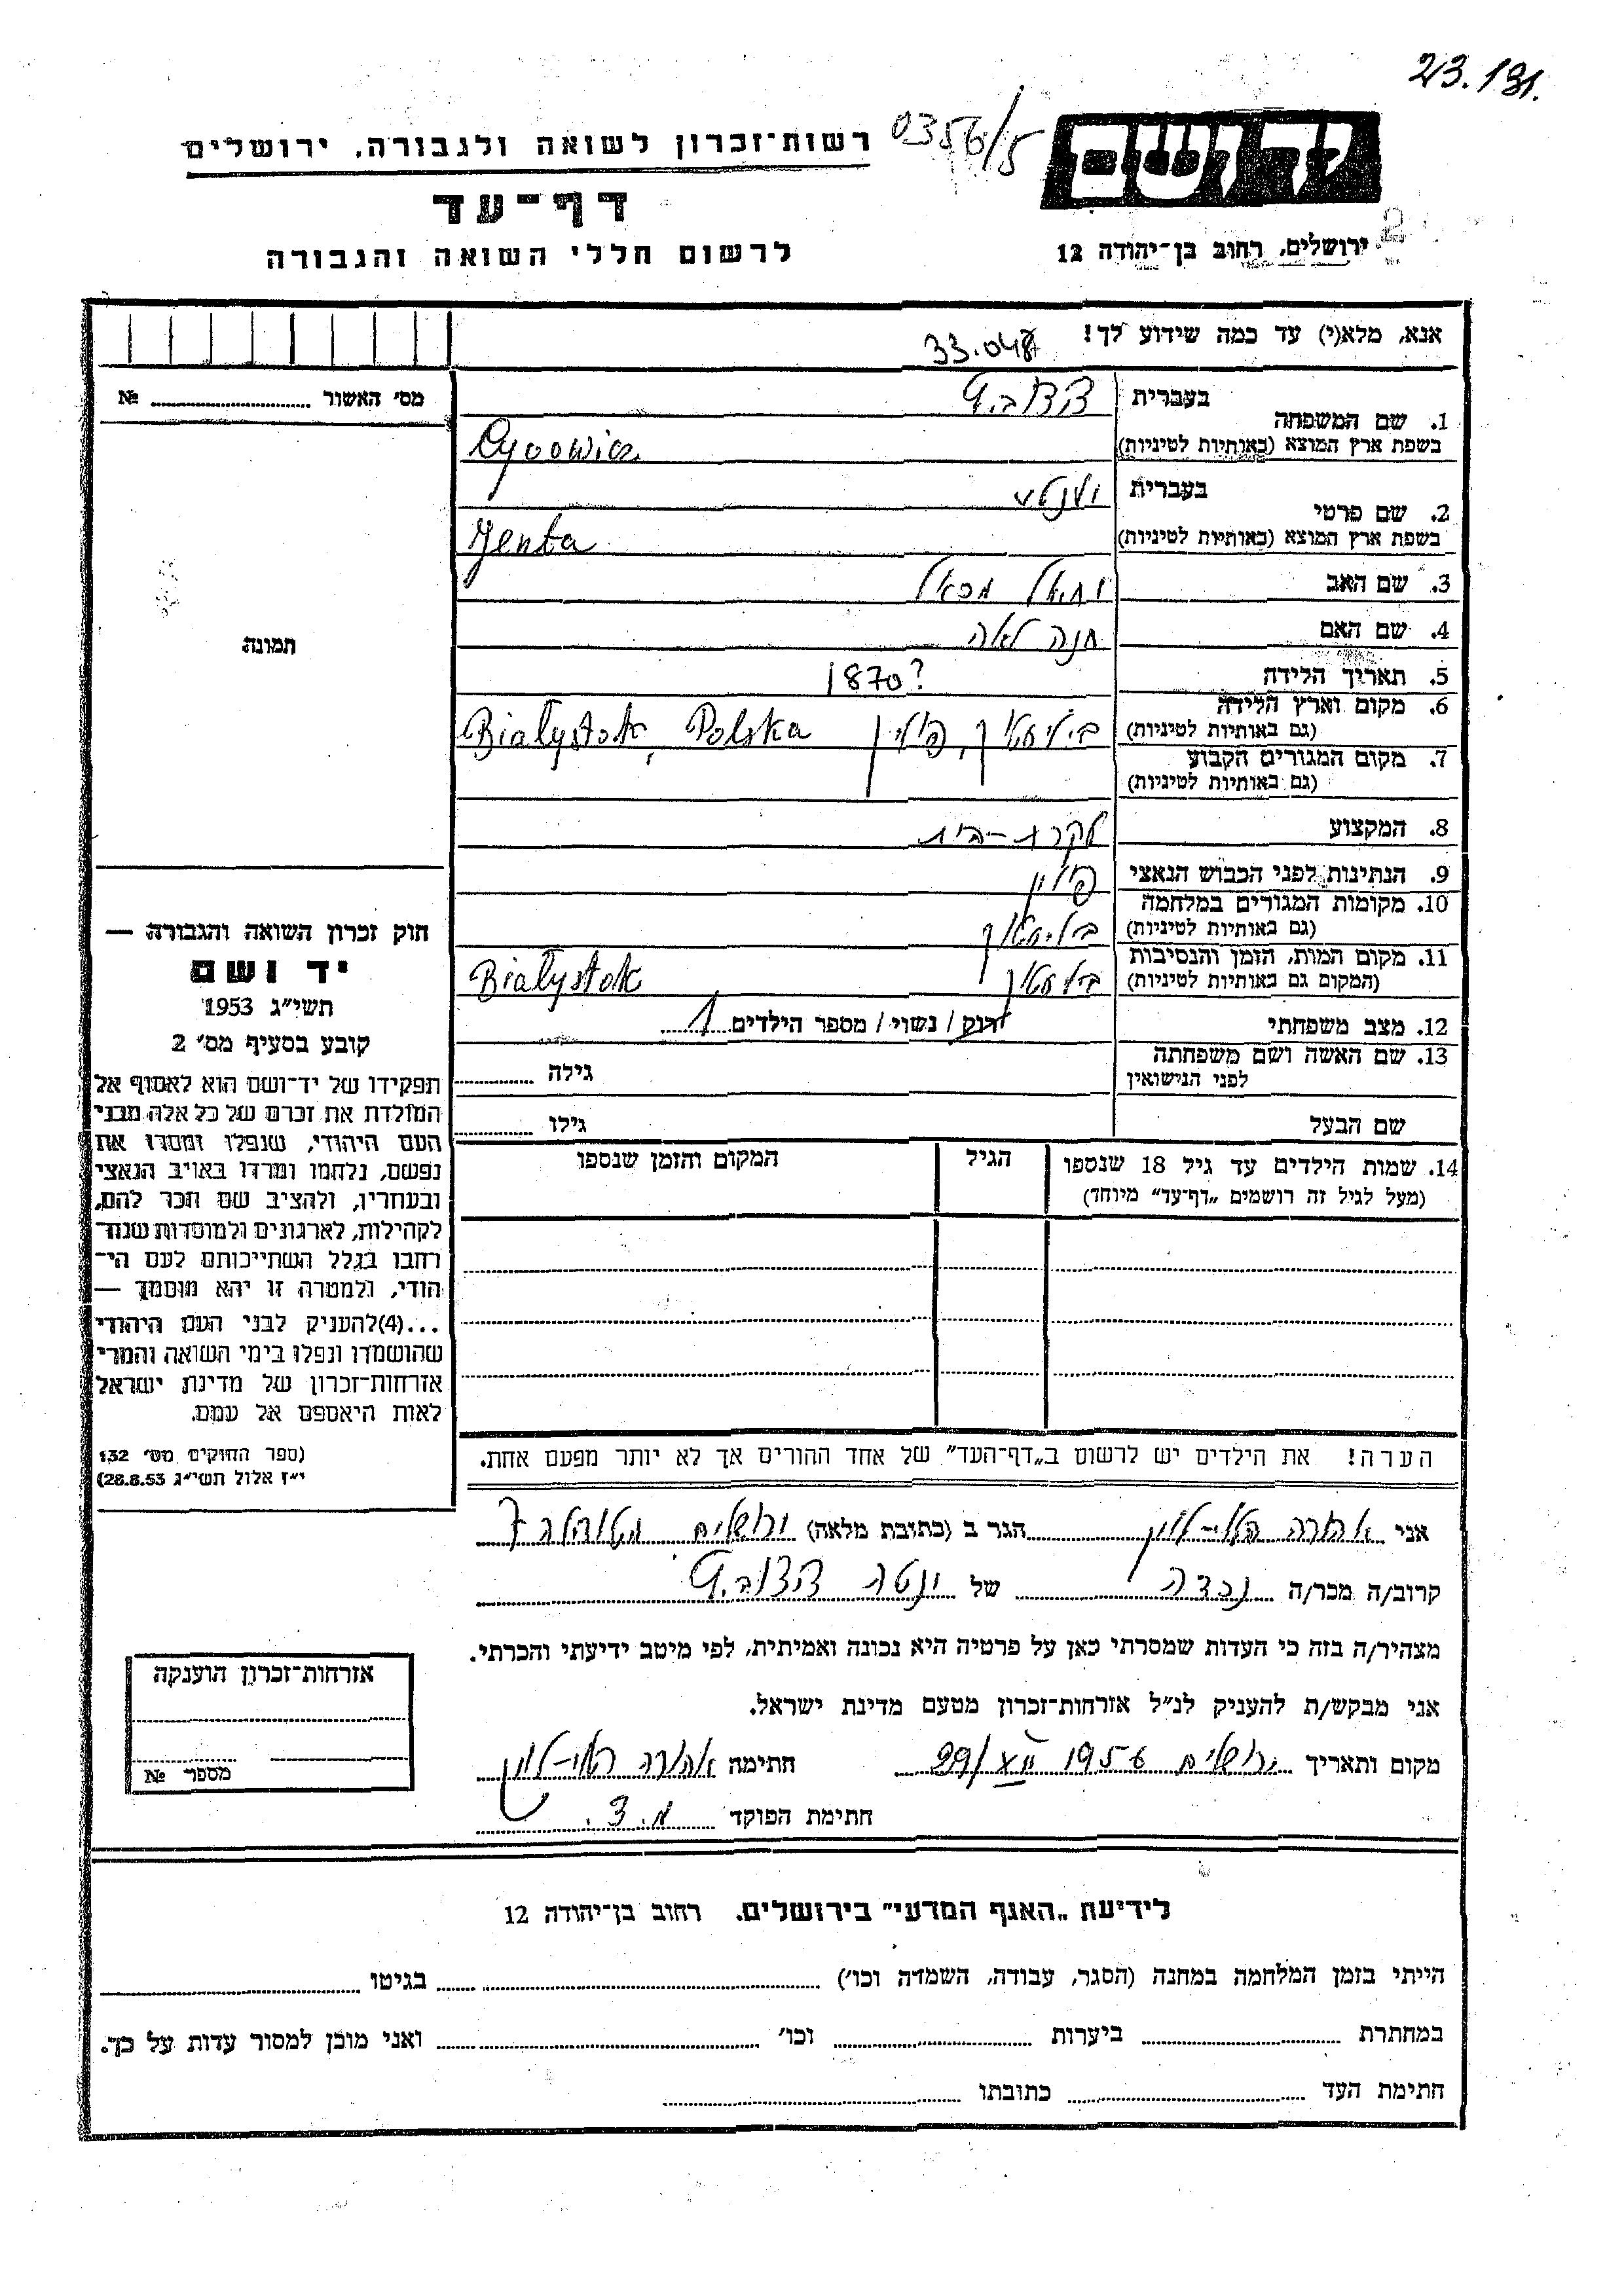 23.131.
0356/5
יד ושם
רשות־זכרון לשואה ולגבורה, ירושלים
דף־עד
לרשום חללי השואה והגבורה
ירושלים, רחוב בן־יהודה 12
אנא, מלא(י) עד כמה שידוע לך!
33.048
מס׳ האשור № 
1. שם המשפחה
בעברית
בשפת ארץ המוצא (באותיות לטיניות)
2. שם פרטי
בעברית
בשפת ארץ המוצא (באותיות לטיניות) Jenta
3. שם האב
4. שם האם חנה לאה
5. תאריך הלידה 1870?
6. מקום וארץ הלידה
(גם באותיות לטיניות) ביליסטוק, פולין Białystok, Polska
7. מקום המגורים הקבוע
(גם באותיות לטיניות)
8. המקצוע עקרת-בית
9. הנתינות לפני הכבוש הנאצי פולין
10. מקומות המגורים במלחמה
(גם באותיות לטיניות)
11. מקום המות, הזמן והנסיבות
(המקום גם באותיות לטיניות) Białystok
12. מצב משפחתי רווק / נשוי / מספר הילדים 1
13. שם האשה ושם משפחתה
לפני הנישואין
גילה
שם הבעל גילו
14. שמות הילדים עד גיל 18 שנספו
(מעל לגיל זה רושמים „דף־עד” מיוחד)
הגיל
המקום והזמן שנספו
הערה! את הילדים יש לרשום ב„דף־העד” של אחד ההורים אך לא יותר מפעם אחת.
תמונה
חוק זכרון השואה והגבורה —
יד ושם
תשי״ג 1953
קובע בסעיף מס׳ 2
תפקידו של יד־ושם הוא לאסוף אל
המולדת את זכרם של כל אלה מבני
העם היהודי, שנפלו ומסרו את
נפשם, נלחמו ומרדו באויב הנאצי
ובעוזריו, ולהציב שם וזכר להם,
לקהילות, לארגונים ולמוסדות שנח־
רבו בגלל השתייכותם לעם הי־
הודי, ולמטרה זו יהא מוסמך —
...(4) להעניק לבני העם היהודי
שהושמדו ונפלו בימי השואה והמרי
אזרחות־זכרון של מדינת ישראל
לאות היאספם אל עמם.
(ספר החוקים מס׳ 132
י״ז אלול תשי״ג 28.8.53)
אני אהובה הגר ב (כתובת מלאה) ירושלים 7
קרוב/ה מכר/ה נכדה של ינטה
מצהיר/ה בזה כי העדות שמסרתי כאן על פרטיה היא נכונה ואמיתית, לפי מיטב ידיעתי והכרתי.
אני מבקש/ת להעניק לנ״ל אזרחות־זכרון מטעם מדינת ישראל.
מקום ותאריך ירושלים 1956 חתימה אהובה
חתימת הפוקד
אזרחות־זכרון הוענקה
מספר №
לידיעת „האגף המדעי” בירושלים, רחוב בן־יהודה 12
הייתי בזמן המלחמה במחנה (הסגר, עבודה, השמדה וכו׳) בגיטו
במחתרת ביערות וכו׳ ואני מוכן למסור עדות על כך.
חתימת העד כתובתו